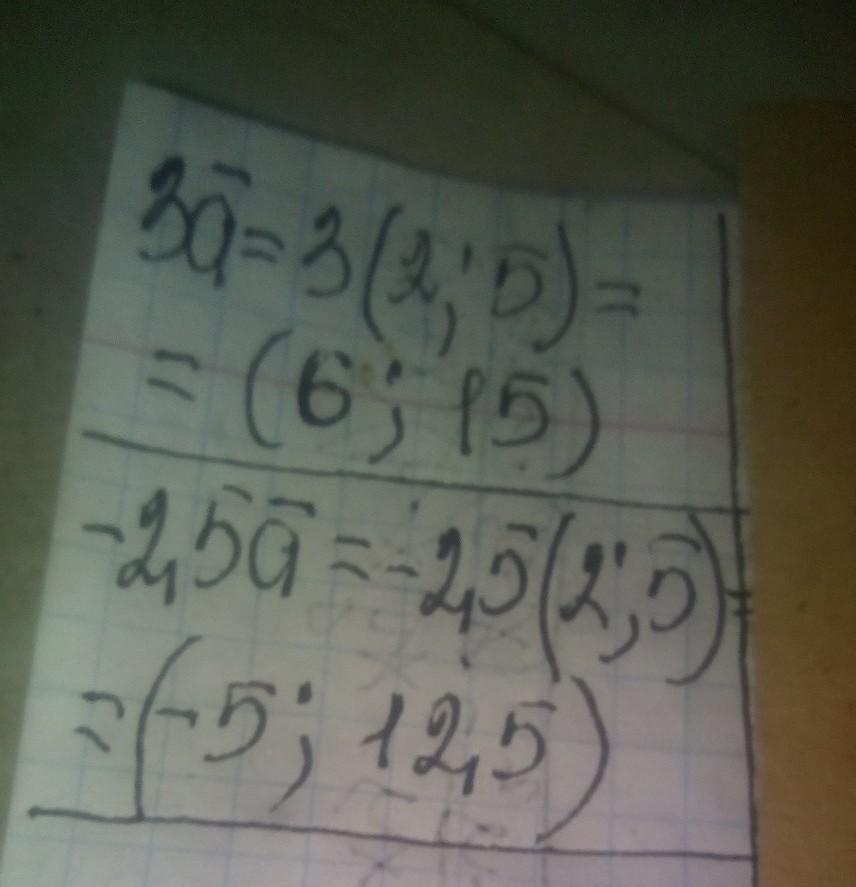 3a̅ = 3(2; 5) =
= (6; 15)
-2,5a̅ = -2,5(2; 5) =
= (-5; 12,5)